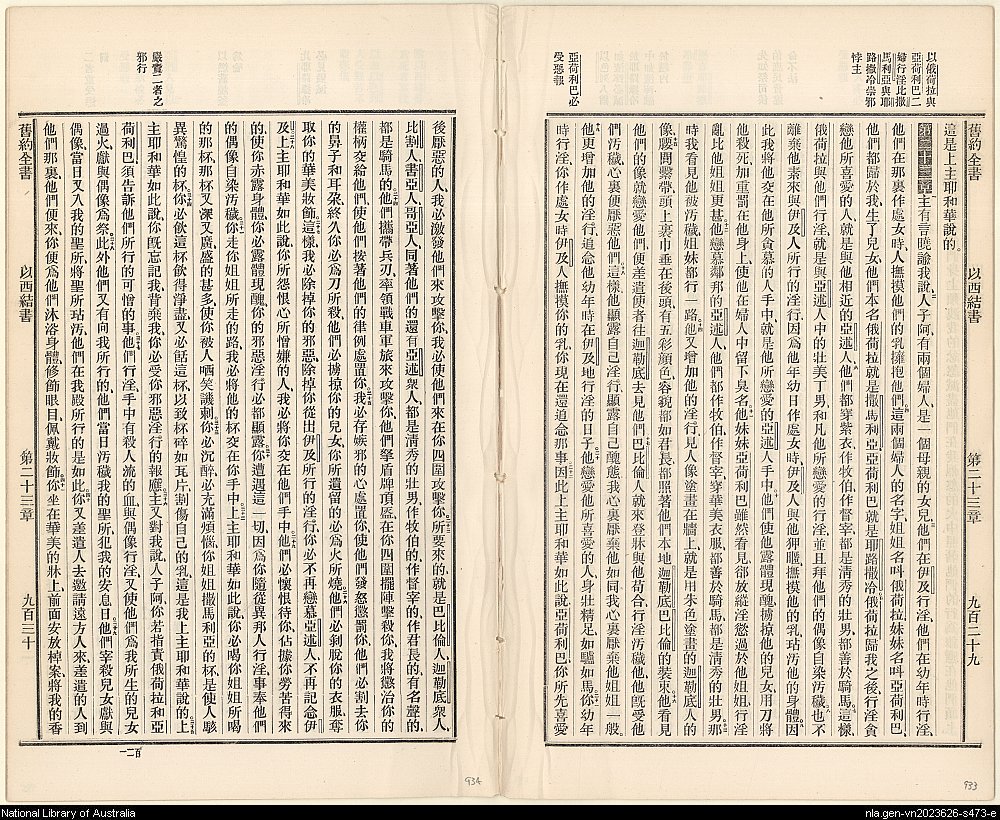 以俄荷拉與
亞荷利巴二
婦行淫比撒
馬利亞與耶
路撒冷崇邪
悖主
亞荷利巴必
受惡報
舊約全書 以西結書 第二十三章 九百二十九
這是上主耶和華說的。
第二十三章 主有言曉諭我說、人子阿、有兩個婦人、是一個母親的女兒、他們在伊及行淫、他們在幼年時行淫、
他們在那裏作處女時、人撫摸他們的乳、擁抱他們、這兩個婦人的名字、姐姐名叫俄荷拉、妹妹名叫亞荷利巴、
他們都歸於我、生了兒女、他們本名俄荷拉就是撒馬利亞、亞荷利巴就是耶路撒冷、俄荷拉歸我之後行淫、貪
戀他所喜愛的人、就是與他相近的亞述人、他們都穿紫衣、作牧伯作督宰、都是清秀的壯男、都善於騎馬、這樣、
俄荷拉與他們行淫、就是與亞述人中的壯美丁男、和凡他所戀愛的行淫、並且拜他們的偶像、自染汚穢、也不
離棄他素來與伊及人所行的淫行、因爲他年幼日作處女時、伊及人與他狎暱、撫摸他的乳、玷汚他的身體、因
此我將他交在他所貪慕的人手中、就是他所戀愛的亞述人手中、他們使他露體現醜、擄掠他的兒女、用刀將
他殺死、加重罰在他身上、使他在婦人中留下臭名、他妹妹亞荷利巴雖然看見、卻放縱淫慾過於他姐姐、行淫
亂比他姐姐更甚、他戀慕鄰邦的亞述人、他們都作牧伯作督宰、穿華美衣服、都善於騎馬、都是清秀的壯男、那
時我看見他被汚穢、姐妹都行一路、他又增加他的淫行、見人像塗畫在牆上、就是用朱色塗畫的迦勒底人的
像、腰間繫帶、頭上裹巾垂在後頭、有五彩顏色、容貌都如君長、都照著他們本地迦勒底巴比倫的裝束、他看見
他們的像就戀愛他們、便差遣使者往迦勒底去見他們、巴比倫人就來登牀與他苟合、行淫汚穢他、他旣受他
們汚穢、心裏便厭惡他們、這樣他顯露自己淫行、顯露自己醜態、我心裏厭棄他、如同我心裏厭棄他姐姐一般、
他更增加他的淫行、追念他幼年時在伊及地行淫的日子、他戀愛他所喜愛的人、身壯精足、如驢如馬、你幼年
時行淫、你作處女時、伊及人撫摸你的乳、你現在還追念那事、因此上主耶和華如此說、亞荷利巴、你所先喜愛
嚴責二者之
邪行
後厭惡的人、我必激發他們來攻擊你、我必使他們來在你四圍攻擊你、所要來的就是巴比倫人、迦勒底衆人、
比割人、書亞人、哥亞人、同著他們的還有亞述衆人、都是清秀的壯男、作牧伯的作督宰的作君長的有名聲的、
都是騎馬的、他們攜帶兵刃、率領戰車軍旅來攻擊你、他們拏盾牌頂盔、在你四圍擺陣擊殺你、我將懲治你的
權柄交給他們、使他們按著他們的律例處置你、我必存嫉邪的心處置你、使他們發怒懲罰你、他們必割去你
的鼻子和耳朶、終久你必爲刀所殺、他們必擄掠你的兒女、你所遺留的必爲火所燒、他們必剝脫你的衣服、奪
取你的華美妝飾、這樣、我必除掉你的邪惡、除掉你從出伊及所行的淫行、你必不再戀慕亞述人、不再記念伊
及、上主耶和華如此說、你所怨恨心所憎嫌的人、我必將你交在他們手中、他們必懷恨待你、佔據你勞苦得來
的、使你赤露身體、你必露體現醜、你的邪惡淫行必都顯露、你遭遇這一切、因爲你隨從異邦人行淫、事奉他們
的偶像、自染汚穢、你走你姐姐所走的路、我必將他的杯交在你手中、上主耶和華如此說、你必喝你姐姐所喝
的那杯、那杯又深又廣、盛的甚多、使你被人哂笑譏刺、你必沉醉、必充滿煩惱、你姐姐撒馬利亞的杯、是使人駭
異驚惶的杯、你必飲這杯、飲得淨盡、又必餂這杯、以致杯碎如瓦片、割傷自己的乳、這是我上主耶和華說的、上
主耶和華如此說、你旣忘記我背棄我、你必受你邪惡淫行的報應、主又對我說、人子阿、你若指責俄荷拉和亞
荷利巴、須告訴他們所行的可憎的事、他們行淫、手中有殺人流的血、與偶像行淫、又使他們爲我所生的兒女
過火獻與偶像爲祭、此外他們又有向我所行的、他們當日汚穢我的聖所、犯我的安息日、他們宰殺兒女獻與
偶像、當日又入我的聖所、將聖所玷汚、他們在我殿所行的是如此、你又差遣人去邀請遠方人來、差遣的人到
他們那裏、他們便來、你便爲他們沐浴身體、修飾眼目、佩戴妝飾、你坐在華美的牀上、前面安放棹案、將我的香
舊約全書 以西結書 第二十三章 九百三十
百二一
934
933
National Library of Australia
nla.gen-vn2023626-s473-e